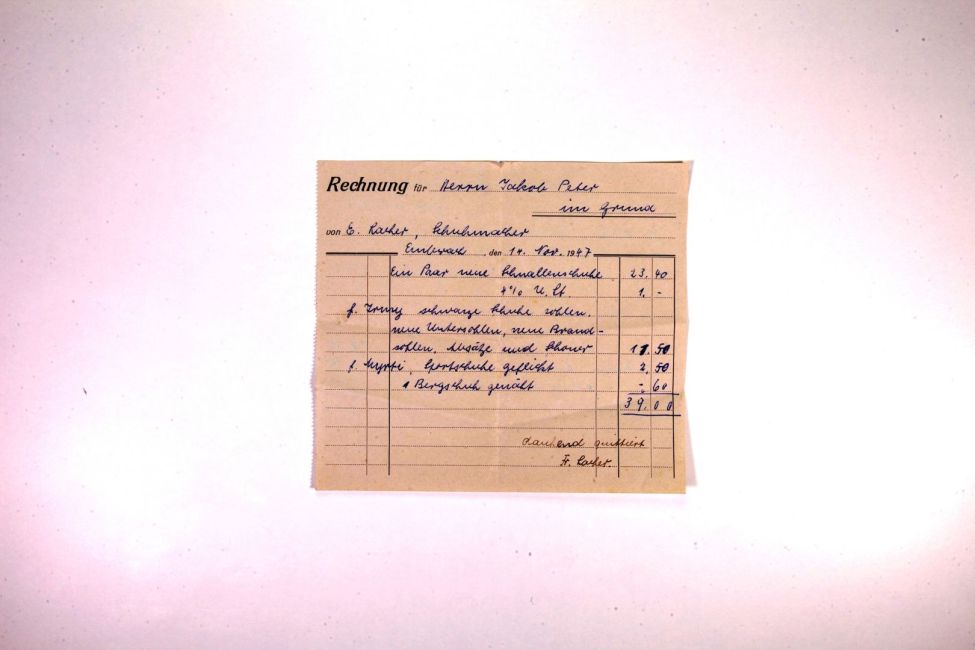 Rechnung für Herrn Jakob Peter
im Grund
von E. Kocher, Schuhmacher
Embrach, den 14. Nov. 1947
Ein Paar neue Schnallenschuhe 23. 40
4% U. St 1. -
f. schwarze Schuhe sohlen,
neue Untersohlen, neue Brand-
sohlen, Absätze und Schoner 11. 50
f. Myrti, Sportschuhe geflickt 2. 50
1 Bergschuh genäht -. 60
39. 00
dankend quittiert